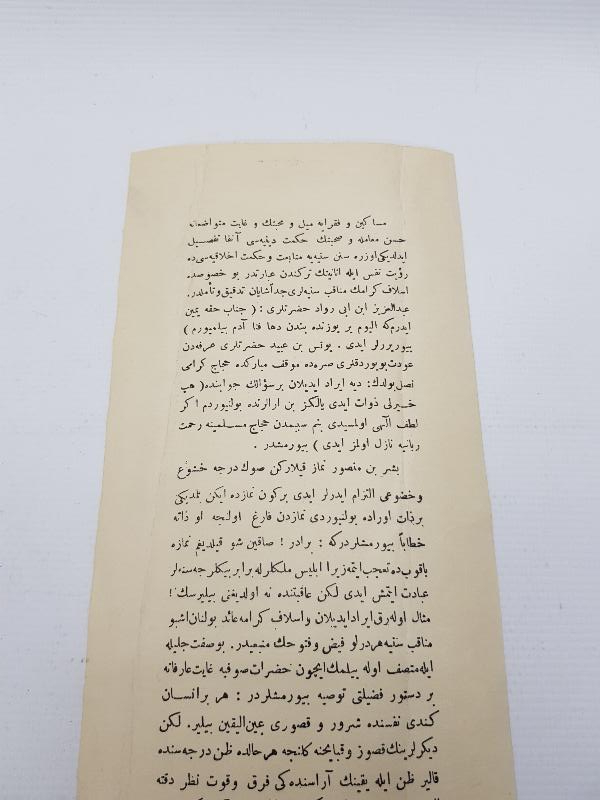 مساكين و فقرايه ميل و محبتك و غايت متواضعانه
حسن معامله و صحبتك حكمت دينيه‌سى آنفا تفصيل
ايدلديكى اوزره سنن سنيه‌يه متابعت و حكمت اخلاقيه‌سى ده
رؤيت نفس ايله انانيتك تركندن عبارتدر بو خصوصده
اسلاف كرامك مناقب سنيه‌لرى جداً شايان تدقيق و تأملدر.
عبدالعزيز ابن ابى رواد حضرتلرى : ( جناب حقه يمين
ايدرم كه اليوم ير يوزنده بندن دها فنا آدم بيلميورم )
بيوررلر ايدى . يونس بن عبيد حضرتلرى عرفه‌دن
عودت بويوردقلرى صره‌ده موقف مباركده حجاج كرامى
نصل بولدك: ديه ايراد ايديلان بر سؤالك جوابنده ( هپ
خيرلى ذوات ايدى يالكز بن ارالرنده بولنيوردم اكر
لطف الٓهى اولمسيدى بنم سببمدن حجاج مسلمينه رحمت
ربانيه نازل اولمز ايدى ) بيورمشدر .
بشر بن منصور نماز قيلاركن صوك درجه خشوع
وخضوعى التزام ايدرلر ايدى بركون نمازده ايكن بلديكى
بر ذات اوراده بولنيوردى نمازدن فارغ اولنجه او ذاته
خطاباً بيورمشلردركه : برادر ! صاقين شو قيلديغم نمازه
باقوب‌ده تعجب ايتمه زيرا ابليس ملكلر له برابر بيكلرجه سنه‌لر
عبادت ايتمش ايدى لكن عاقبتنده نه اولديغنى بيليرسك !
مثال اوله‌رق ايراد ايديلان و اسلاف كرامه عائد بولنان اشبو
مناقب سنيه هر درلو فيض و فتوحك منبعيدر. بو صفت جليله
ايله متصف اوله بيلمك ايچون حضرات صوفيه غايت عارفانه
بر دستور فضيلتى توصيه بيورمشلردر : هر برانسان
كندى نفسنده شرور و قصورى عين اليقين بيلير. لكن
ديكرلرينك قصور و قبايحنه كانجه هر حالده ظن درجه سنده
قالير ظن ايله يقينك آراسنده كى فرق وقوت نظر دقته